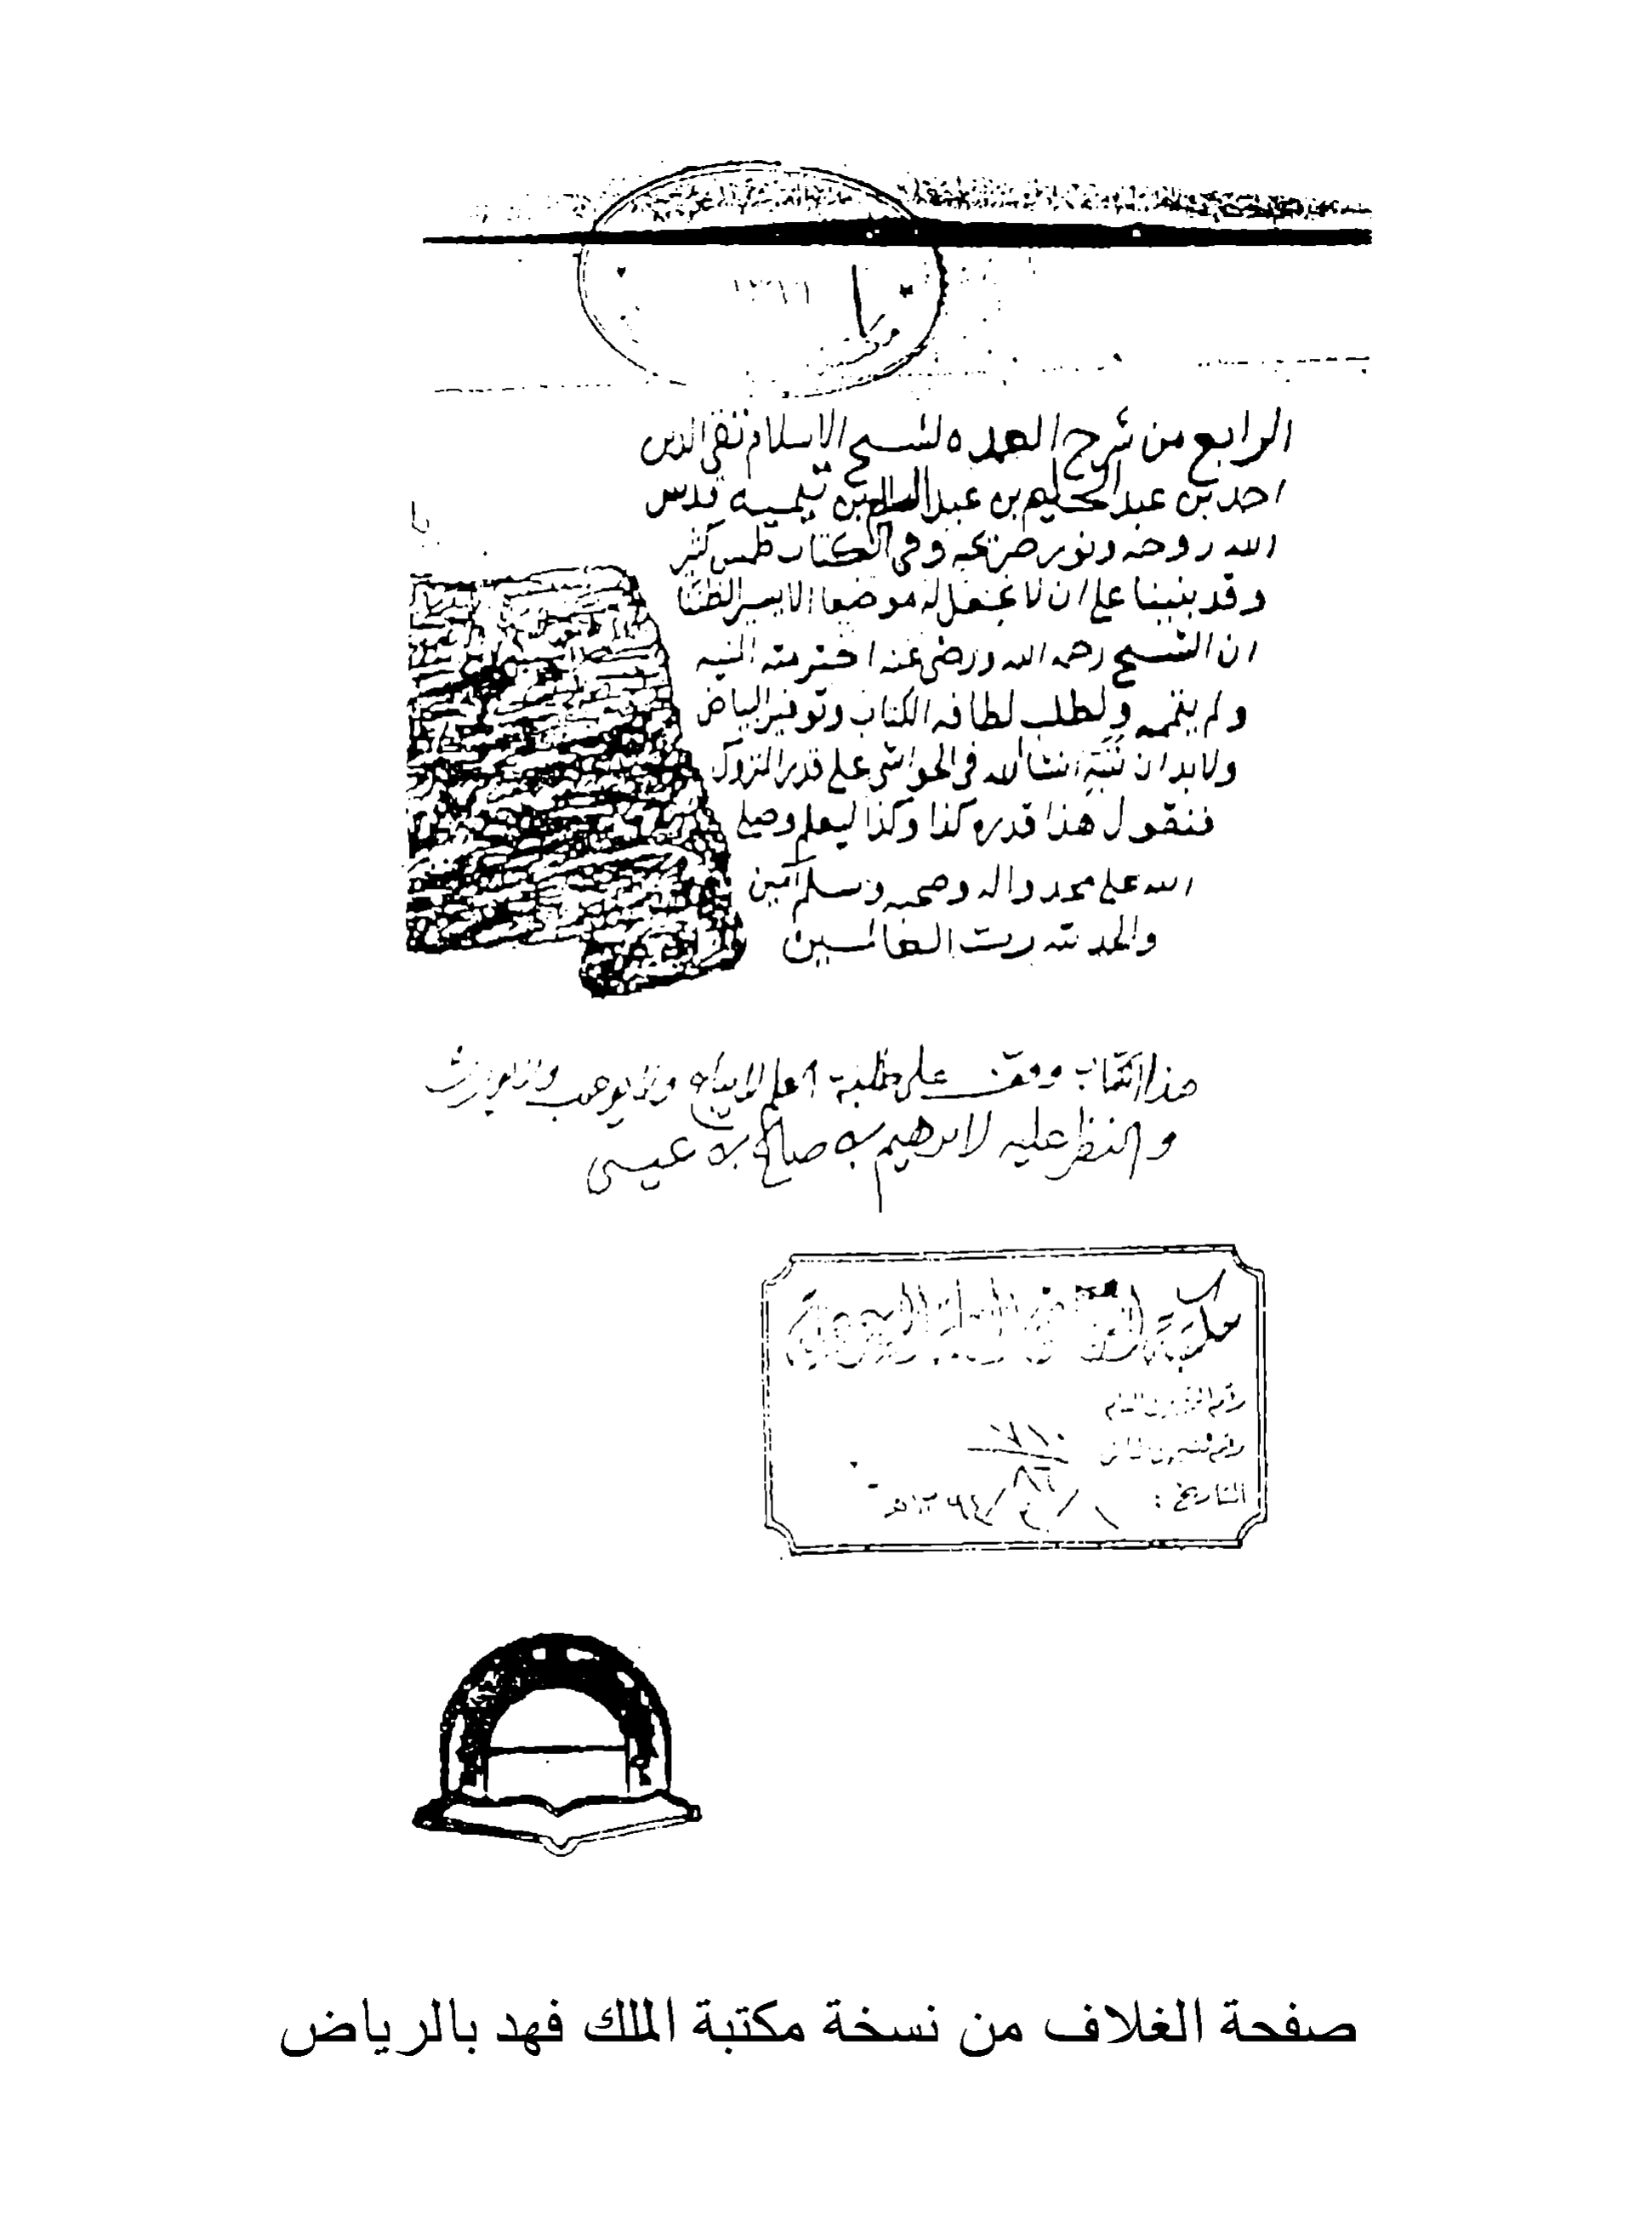 الرابع من شرح العمده لشيخ الاسلام تقي الدين
احمد بن عبد الحليم بن عبد السلام بن تيميه قدس
الله روحه ونور ضريحه وفي الكتاب طمس كثير
وقد بنينا على ان لا نجعل له موضعا الا يسير لظننا
ان الشيخ رحمه الله ورضي عنه اخترمته المنيه
ولم يتمه ولطلب لطافه الكتاب وتوفير البياض
ولا بد ان ننبه انشا الله في الحواشي على قدر المتروك
فنقول هذا قدره كذا وكذا ليعلم وصلى
الله على محمد واله وصحبه وسلم آمين
والحمد لله رب العالمين
هذا الكتاب وقف على طلبة العلم لا يباع ولا يوهب ولا يورث
والنظر عليه لابرهيم بن صالح بن عيسى
مكتبة
رقم
رقم
التاريخ :
صفحة الغلاف من نسخة مكتبة الملك فهد بالرياض